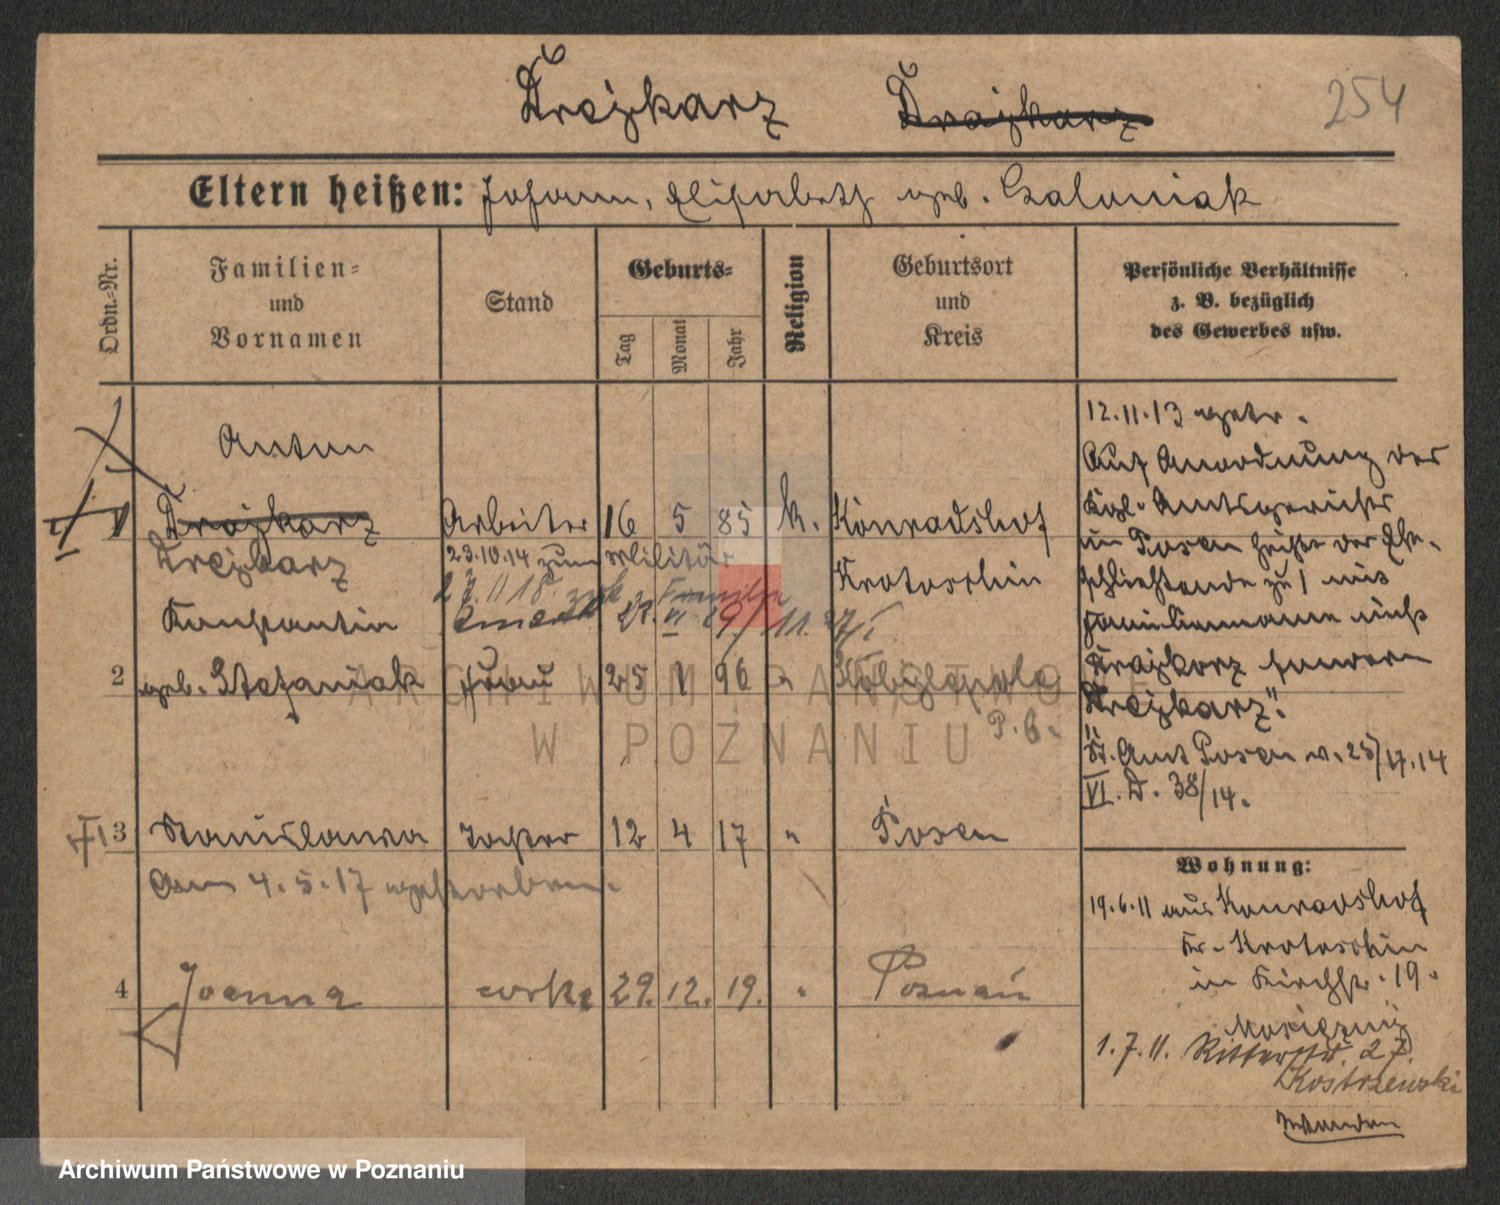 Drejkarz Drajkarz 254
Eltern heißen: Johann, Elisabeth geb. Czaloniak
Ordn.-Nr.
Familien-
und
Vornamen
Stand
Geburts-
Tag
Monat
Jahr
Religion
Geburtsort
und
Kreis
Persönliche Verhältnisse
z. B. bezüglich
des Gewerbes usw.
Anton
1 Drajkarz Arbeiter 16 5 85 k. Konradshof
Drejkarz 23.10.14 zum Militär Krotoschin
27.11 18. Familie
Konstantin
2 geb. Stefaniak Frau 25 1 96 "
P. O.
3 Stanislawa Tochter 12 4 17 " Posen
Am 4.5.17 gestorben.
4 Joanna córka 29. 12. 19. " Poznań
12.11.13 getr.
Auf Anordnung des
Kgl. Amtsgerichts
in Posen heißt der Ehe-
schließende zu 1 mit
Familienname nicht
Drajkarz sondern
Drejkarz".
St. Amt Posen v. 25/17.14
VI. D. 38/14.
Wohnung:
19.6.11 aus Konradshof
Kr. Krotoschin
in Kirchstr. 19.
1.7.11. Ritterstr. 27.
Kostrzewski
ARCHIWUM PAŃSTWOWE
W POZNANIU
Archiwum Państwowe w Poznaniu